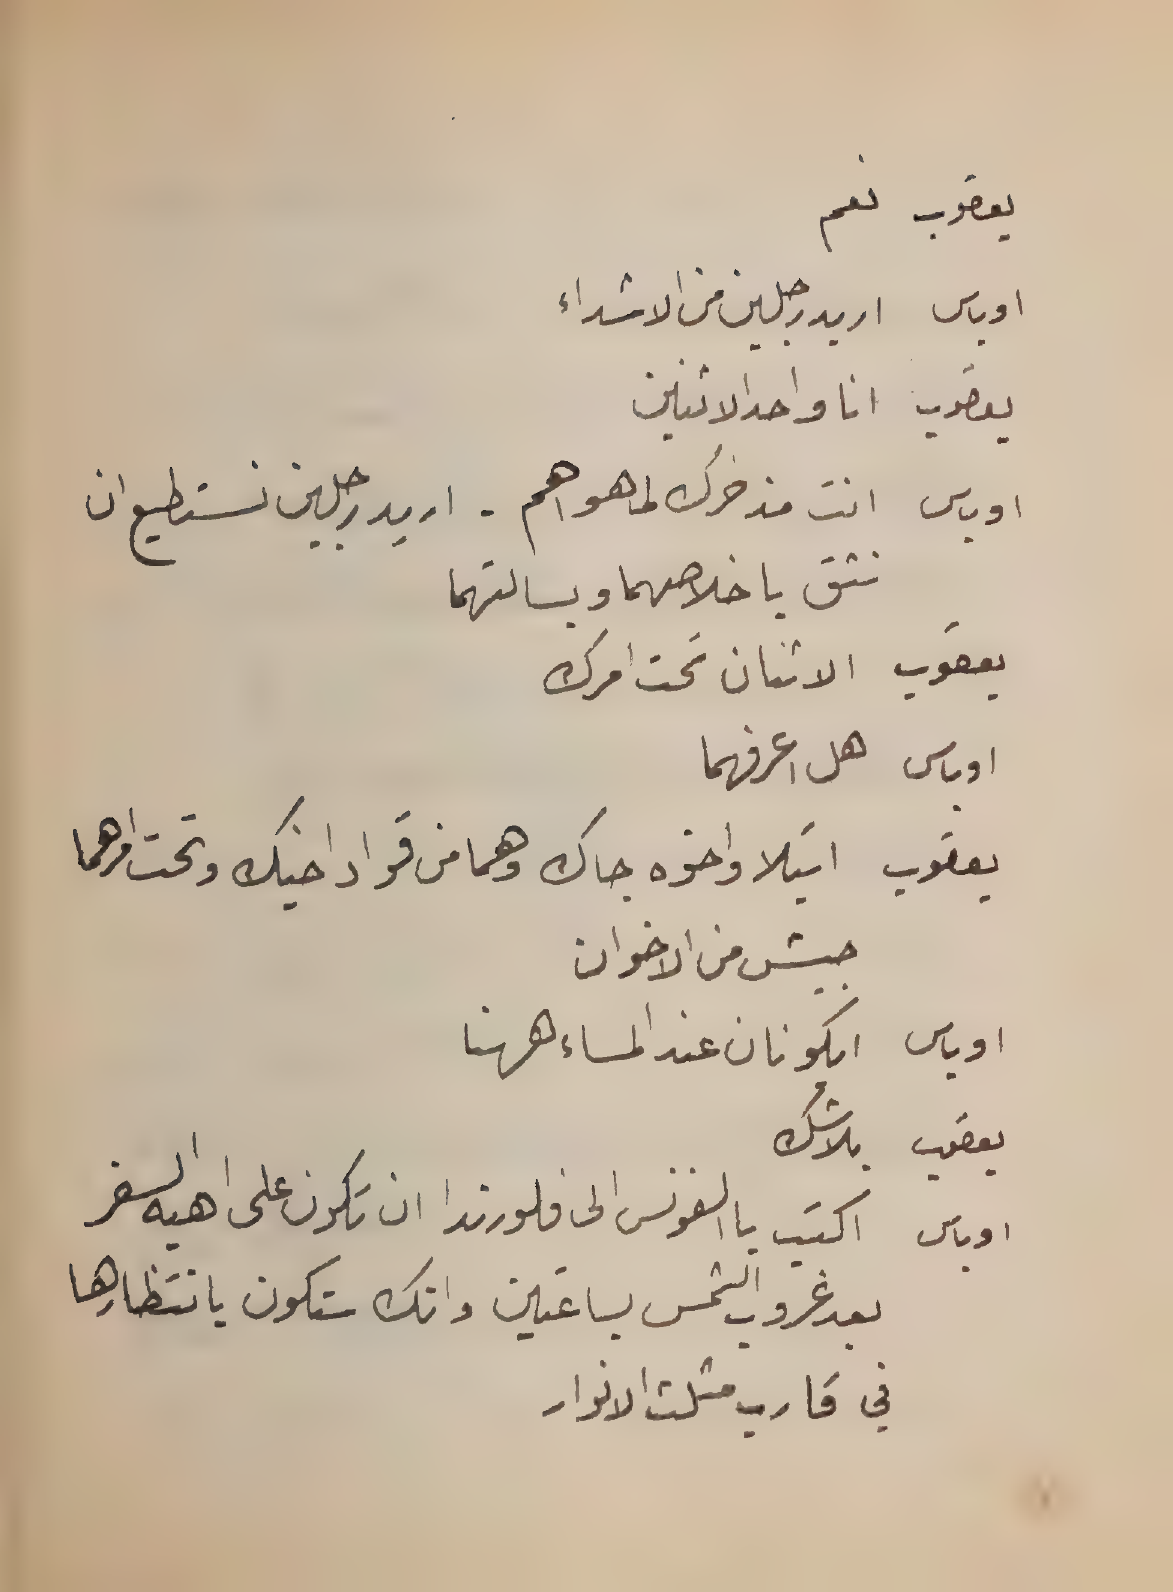 يعقوب نعم
اوباس اريد رجلين من الاشداء
يعقوب انا واحد الاثنين
اوباس انت مذخرك لما هو اهم - اريد رجلين نستطيع ان
نثق باخلاصهما وبسالتهما
يعقوب الاثنان تحت امرك
اوباس هل اعرفهما
يعقوب اتيلا واخوه جاك وهما من قواد اخيك وتحت امرهما
جيش من الاخوان
اوباس ايكونان عند المساء ههنا
يعقوب بلا شك
اوباس اكتب يا الفونس الى فلورندا ان تكون على اهبه السفر
بعد غروب الشمس بساعتين وانك ستكون بانتظارها
في قارب مثلث الانوار